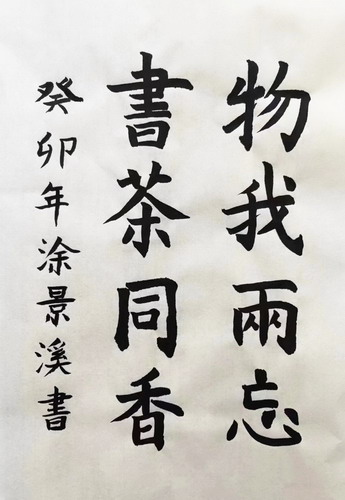 物我兩忘
書茶同香
癸卯年涂景溪書